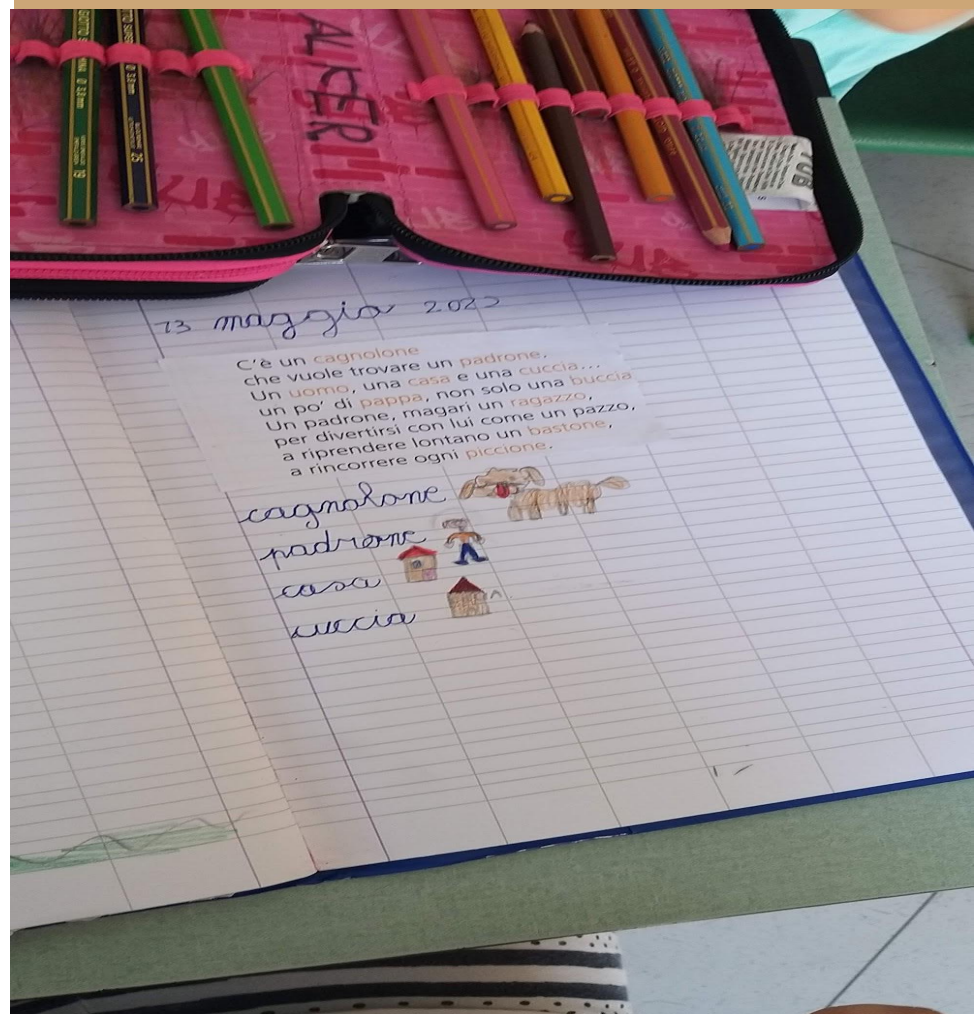 ALICE R
19
25
13 maggio 202
C'è un cagnolone
che vuole trovare un padrone.
Un uomo, una casa e una cuccia...
un po' di pappa, non solo una buccia
Un padrone, magari un ragazzo,
per divertirsi con lui come un pazzo,
a riprendere lontano un bastone,
a rincorrere ogni piccione.
cagnolone
padrone
casa
cuccia